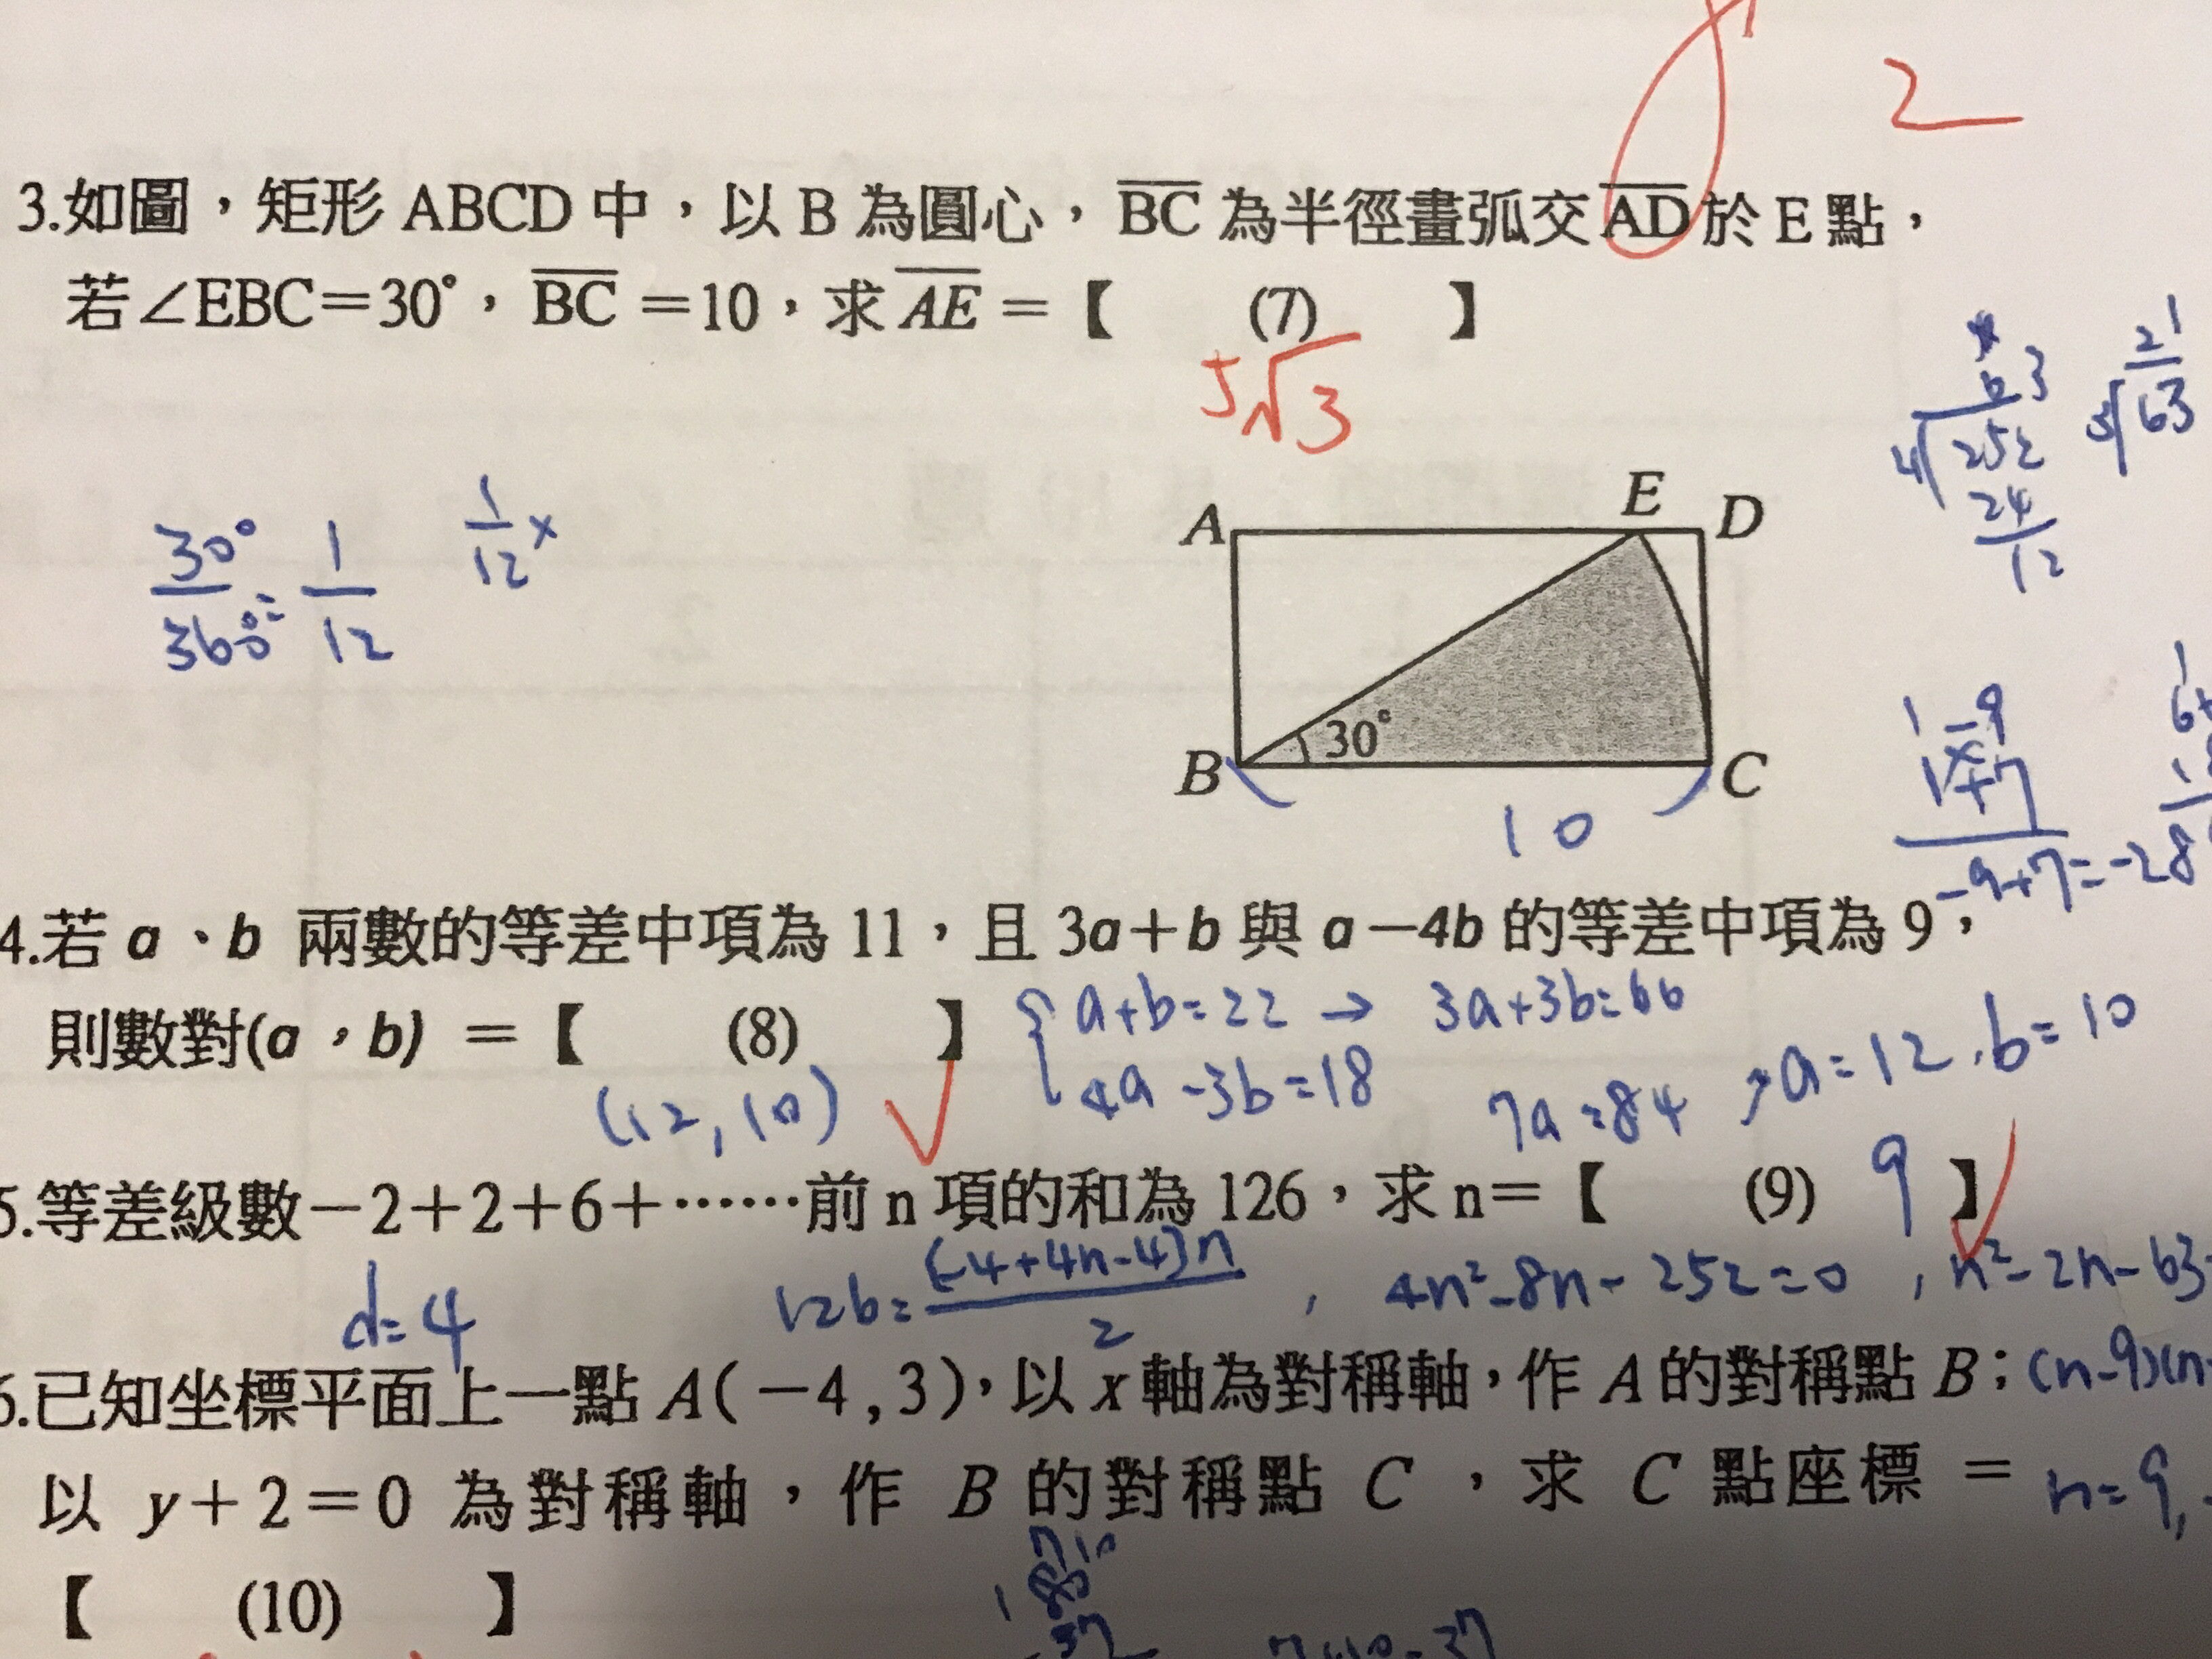 2
3.如圖，矩形 ABCD 中，以 B 為圓心，BC 為半徑畫弧交 AD 於 E 點，
若∠EBC＝30°，BC＝10，求 AE＝【 (7) 】
5√3
30°/360° = 1/12
1/12 ×
A E D
30°
B C
10
63
4√252
24
12
21
3√63
1 -9
1 +7
-9+7=-2
4.若 a、b 兩數的等差中項為 11，且 3a＋b 與 a－4b 的等差中項為 9，
則數對(a，b) ＝【 (8) 】
(12, 10)
a+b=22 → 3a+3b=66
4a-3b=18
7a=84, a=12, b=10
5.等差級數－2＋2＋6＋……前 n 項的和為 126，求 n＝【 (9) 9 】
d=4
126=(-4+4n-4)n/2, 4n²-8n-252=0, n²-2n-63
6.已知坐標平面上一點 A(－4,3)，以 x 軸為對稱軸，作 A 的對稱點 B；
(n-9)(n
以 y＋2＝0 為對稱軸，作 B 的對稱點 C，求 C 點座標＝
n=9,
【 (10) 】